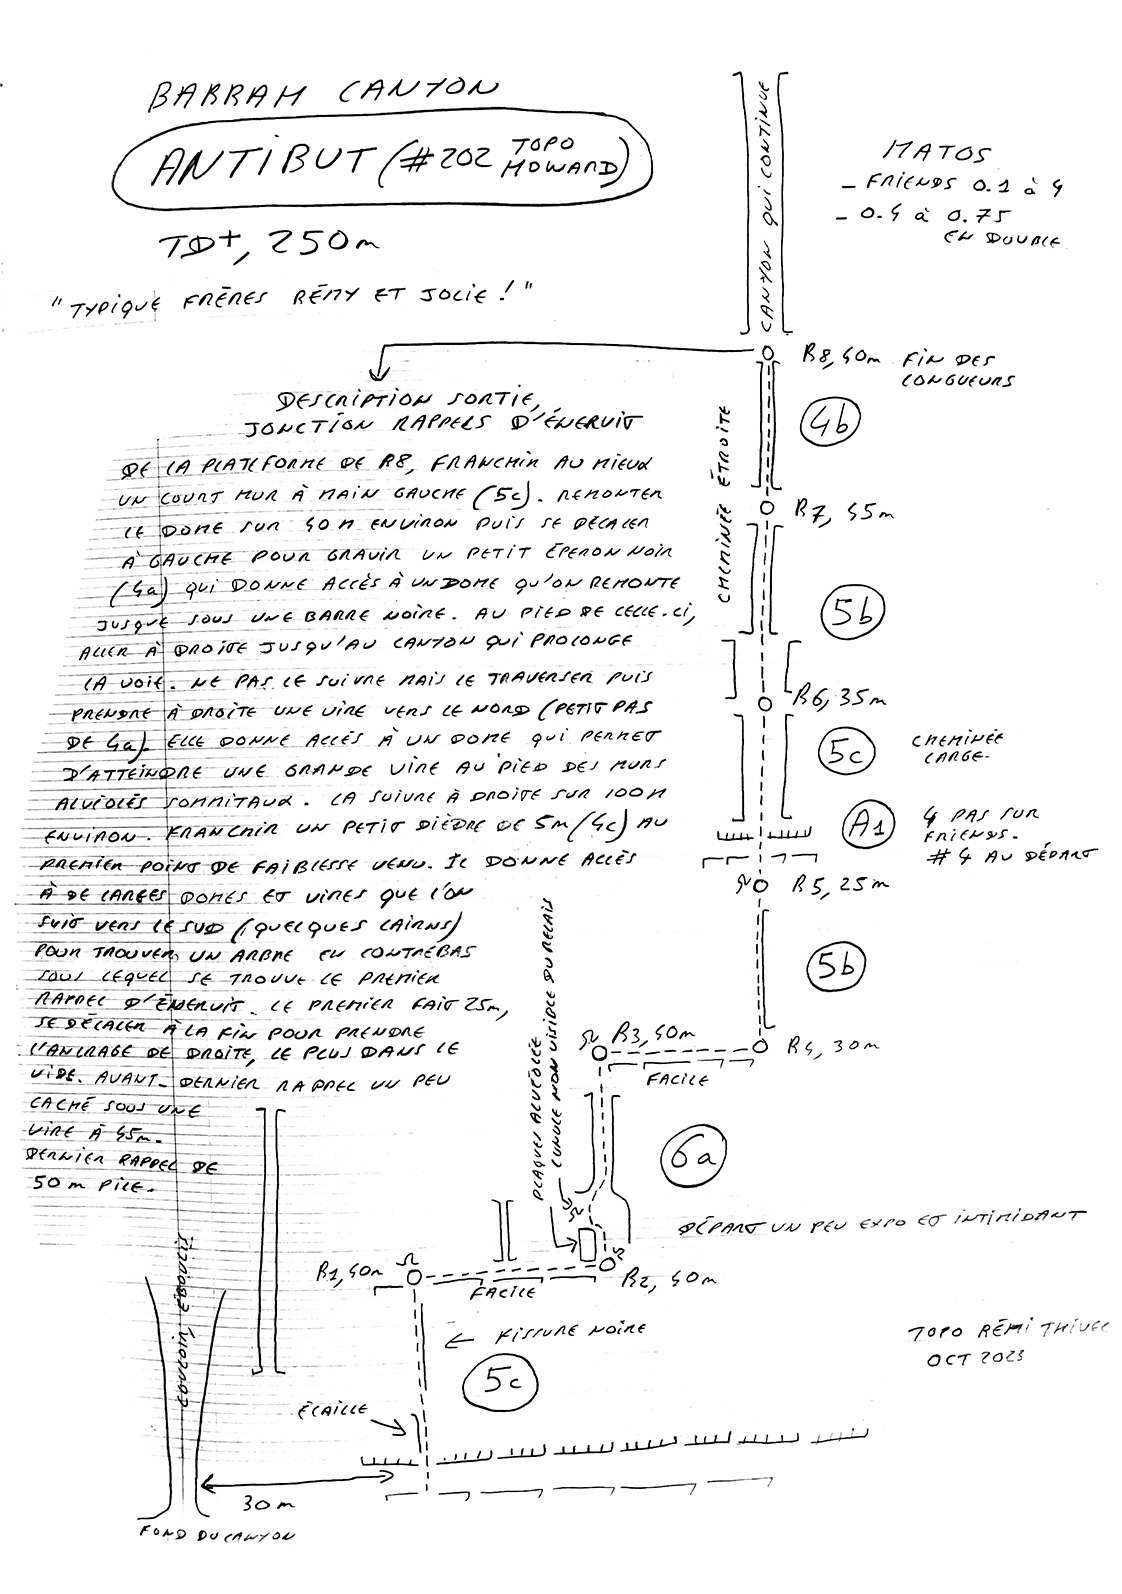 BARRAH CANYON
ANTIBUT (#202 TOPO HOWARD)
TD+, 250m
"TYPIQUE FRÈRES RÉMY ET JOLIE !"
MATOS
- FRIENDS 0.1 à 4
- 0.4 à 0.75
EN DOUBLE
CANYON QUI CONTINUE
R8, 40m FIN DES
LONGUEURS
4b
CHEMINÉE ÉTROITE
R7, 45m
5b
R6, 35m
5c
CHEMINÉE
LARGE.
A1
4 PAS SUR
FRIENDS.
#4 AU DÉPART
R5, 25m
5b
R3, 40m
R4, 30m
FACILE
PLAQUES ALVÉOLÉE
LUNULE NON VISIBLE DU RELAIS
6a
DÉPART UN PEU EXPO ET INTIMIDANT
R1, 40m
FACILE
R2, 40m
FISSURE NOIRE
5c
ÉCAILLE
30m
FOND DU CANYON
TOPO RÉMI THIVEL
OCT 2023
DESCRIPTION SORTIE,
JONCTION RAPPELS D'ÉMERUIT
DE LA PLATEFORME DE R8, FRANCHIR AU MIEUX
UN COURT MUR À MAIN GAUCHE (5c). REMONTER
LE DOME SUR 40M ENVIRON PUIS SE DÉCALER
À GAUCHE POUR GRAVIR UN PETIT ÉPERON NOIR
(4a) QUI DONNE ACCÈS À UN DOME QU'ON REMONTE
JUSQUE SOUS UNE BARRE NOIRE. AU PIED DE CELLE-CI,
ALLER À DROITE JUSQU'AU CANYON QUI PROLONGE
LA VOIE. NE PAS LE SUIVRE MAIS LE TRAVERSER PUIS
PRENDRE À DROITE UNE VIRE VERS LE NORD (PETIT PAS
DE 4a). ELLE DONNE ACCÈS À UN DOME QUI PERMET
D'ATTEINDRE UNE GRANDE VIRE AU PIED DES MURS
ALVÉOLÉS SOMMITAUX. LA SUIVRE À DROITE SUR 100M
ENVIRON. FRANCHIR UN PETIT DIÈDRE DE 5m (4c) AU
PREMIER POINT DE FAIBLESSE VENU. IL DONNE ACCÈS
À DE LARGES DOMES ET VIRES QUE L'ON
SUIT VERS LE SUD (QUELQUES CAIRNS)
POUR TROUVER UN ARBRE EN CONTREBAS
SOUS LEQUEL SE TROUVE LE PREMIER
RAPPEL D'ÉMERUIT. LE PREMIER FAIT 25m,
SE DÉCALER À LA FIN POUR PRENDRE
L'ANCRAGE DE DROITE, LE PLUS DANS LE
VIDE. AVANT-DERNIER RAPPEL UN PEU
CACHÉ SOUS UNE
VIRE À 45m.
DERNIER RAPPEL DE
50m PILE.